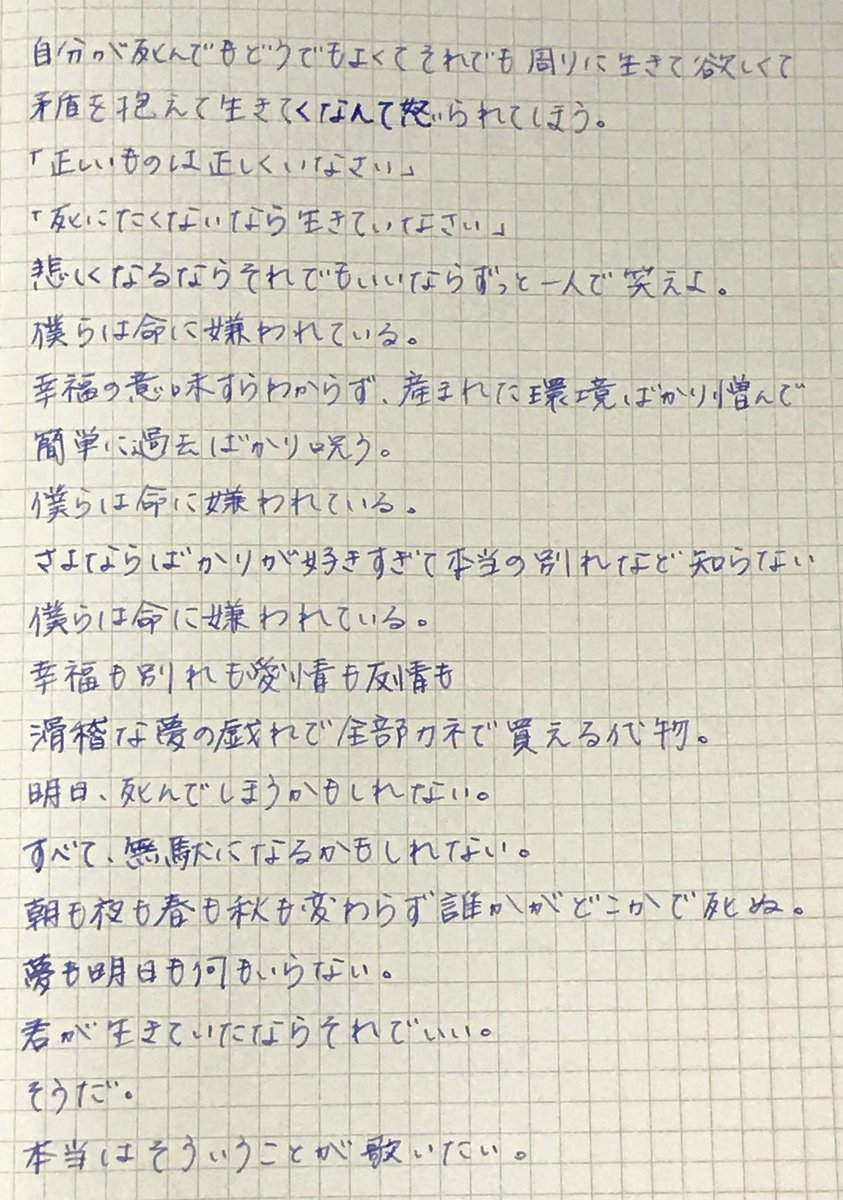 自分が死んでもどうでもよくてそれでも周りに生きて欲しくて
矛盾を抱えて生きてくなんて怒られてしまう。
「正しいものは正しくいなさい」
「死にたくないなら生きていなさい」
悲しくなるならそれでもいいならずっと一人で笑えよ。
僕らは命に嫌われている。
幸福の意味すらわからず、産まれた環境ばかり憎んで
簡単に過去ばかり呪う。
僕らは命に嫌われている。
さよならばかりが好きすぎて本当の別れなど知らない
僕らは命に嫌われている。
幸福も別れも愛情も友情も
滑稽な夢の戯れで全部カネで買える代物。
明日、死んでしまうかもしれない。
すべて、無駄になるかもしれない。
朝も夜も春も秋も変わらず誰かがどこかで死ぬ。
夢も明日も何もいらない。
君が生きていたならそれでいい。
そうだ。
本当はそういうことが歌いたい。